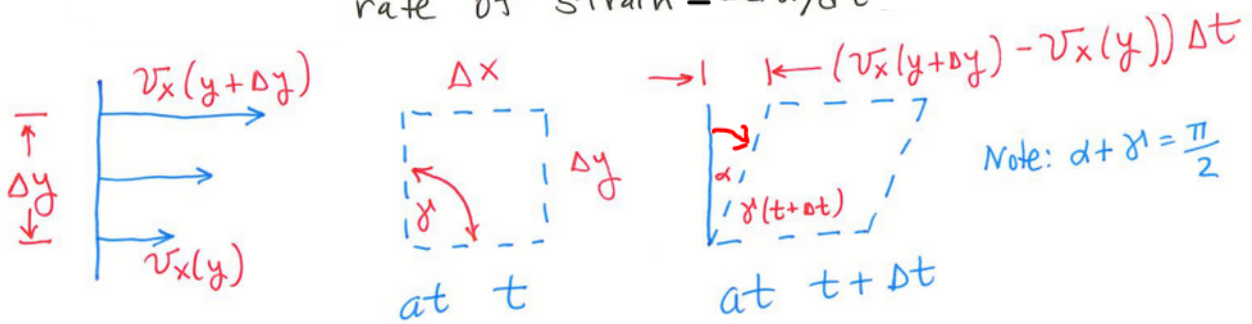 rate of strain =
v_x(y+Δy)
Δy
v_x(y)
Δx
Δy
γ
at t
(v_x(y+Δy) - v_x(y)) Δt
α
γ(t+Δt)
at t+Δt
Note: α+γ = π/2